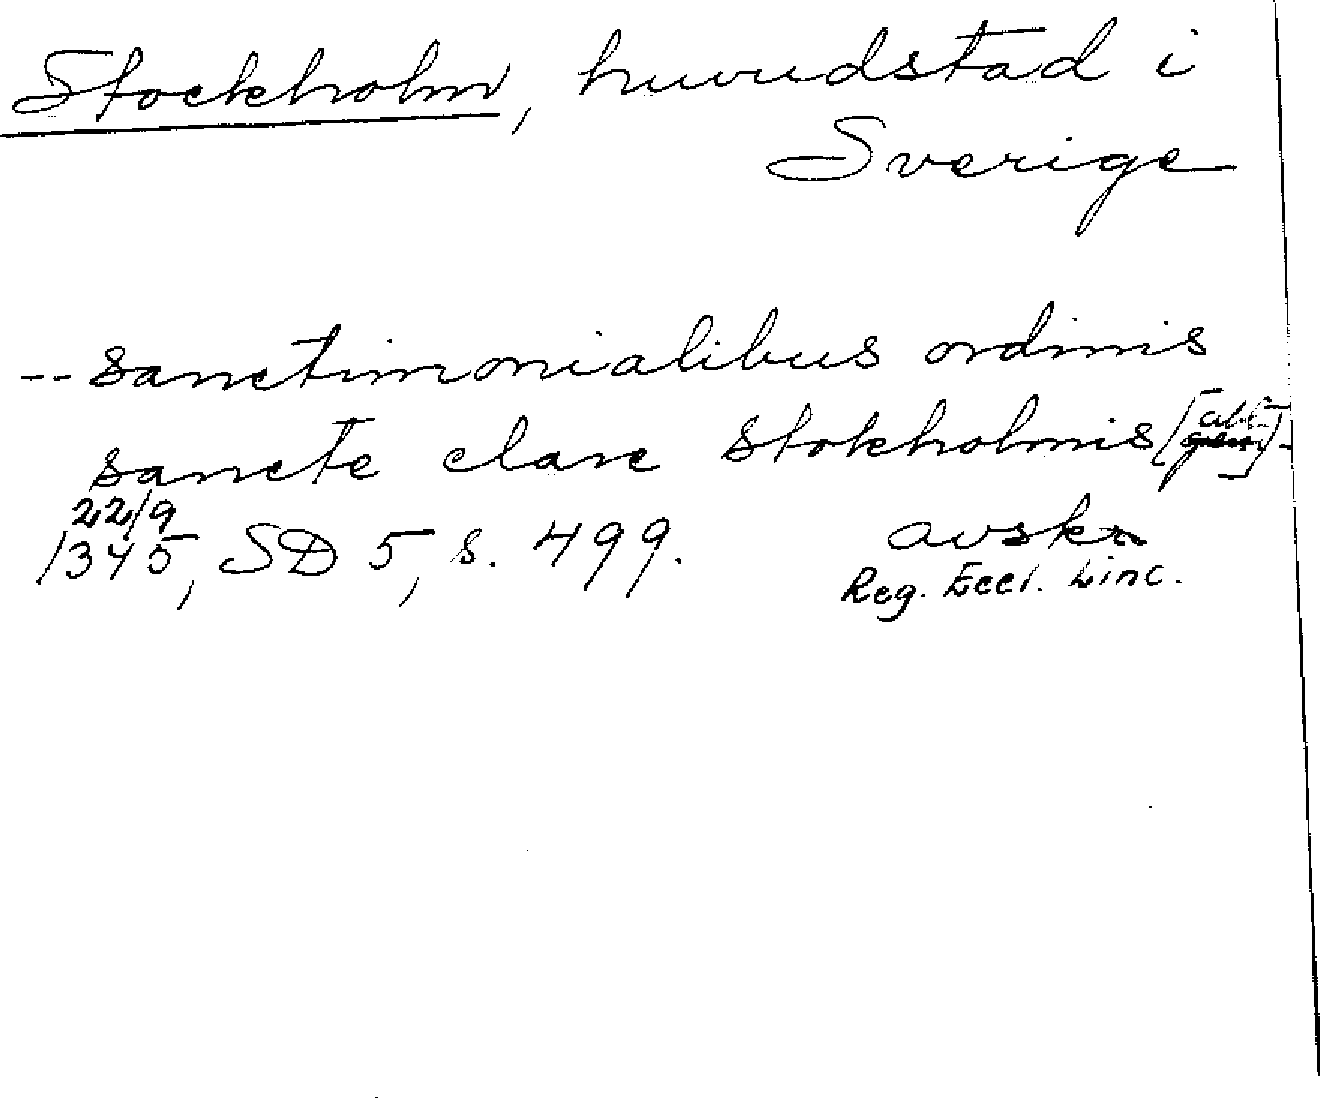 Stockholm, huvudstad i
Sverige
-- sanctimonialibus ordinis
sancte clare stokholmis [abl.] -
22/9
1345, SD 5, s. 499. avskr
Reg. Eccl. Linc.